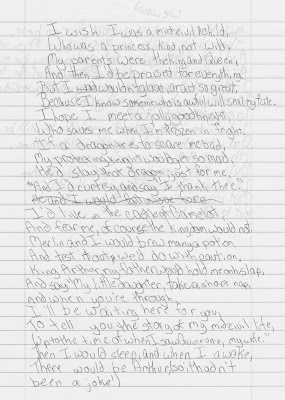 I wish I was a mideivil child,
Who was a princess, kind, not wild.
My parents were the King and Queen,
And then I'd be praised for everything.
But I would n't gloat or act so great,
Because I know someone who is awful will seal my fate.
I hope I meet a jolly good knight
Who saves me when I'm frozen in fright.
If a dragon tries to scare me bad,
My protecting knight would get so mad.
He'd slay that dragon just for me
"And I'd curtesy and say I thank thee."
He and I would
I'd live in the castle at Camelot
And fear me, of course the kingdom would not.
Merlin and I would brew many a potion
And test it out, we'd do with caution.
King Arthur, my father would hold me on his lap,
And say "My little daughter, take a short nap,
And when you're through,
I'll be waiting here for you,
To tell you the story of my mideivil life,
Up to the time of when I saw Guinevere, my wife."
Then I would sleep, and when I awake,
There would be Arthur, (so it hadn't
been a joke!)